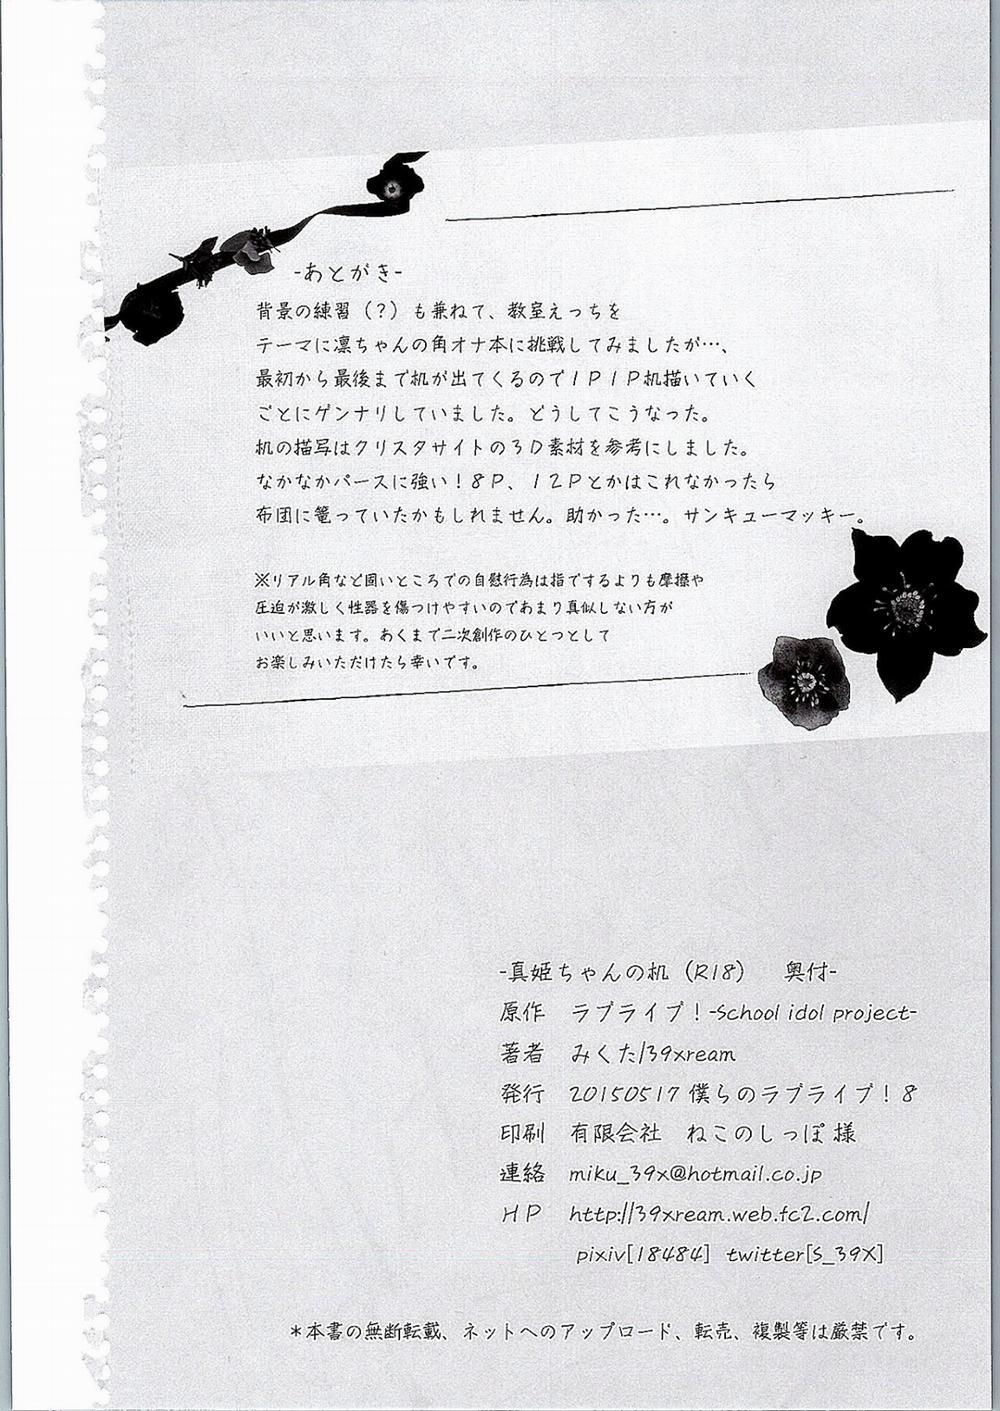 -あとがき-
背景の練習（？）も兼ねて、教室えっちを
テーマに凛ちゃんの角オナ本に挑戦してみましたが…、
最初から最後まで机が出てくるので１Ｐ１Ｐ机描いていく
ごとにゲンナリしていました。どうしてこうなった。
机の描写はクリスタサイトの３Ｄ素材を参考にしました。
なかなかパースに強い！８Ｐ、１２Ｐとかはこれなかったら
布団に篭っていたかもしれません。助かった…。サンキューマッキー。
※リアル角など固いところでの自慰行為は指でするよりも摩擦や
圧迫が激しく性器を傷つけやすいのであまり真似しない方が
いいと思います。あくまで二次創作のひとつとして
お楽しみいただけたら幸いです。
-真姫ちゃんの机（R18）　奥付-
原作　ラブライブ！-School idol project-
著者　みくた/39xream
発行　20150517 僕らのラブライブ！８
印刷　有限会社　ねこのしっぽ 様
連絡　miku_39x@hotmail.co.jp
ＨＰ　http://39xream.web.fc2.com/
pixiv[18484] twitter[S_39X]
＊本書の無断転載、ネットへのアップロード、転売、複製等は厳禁です。